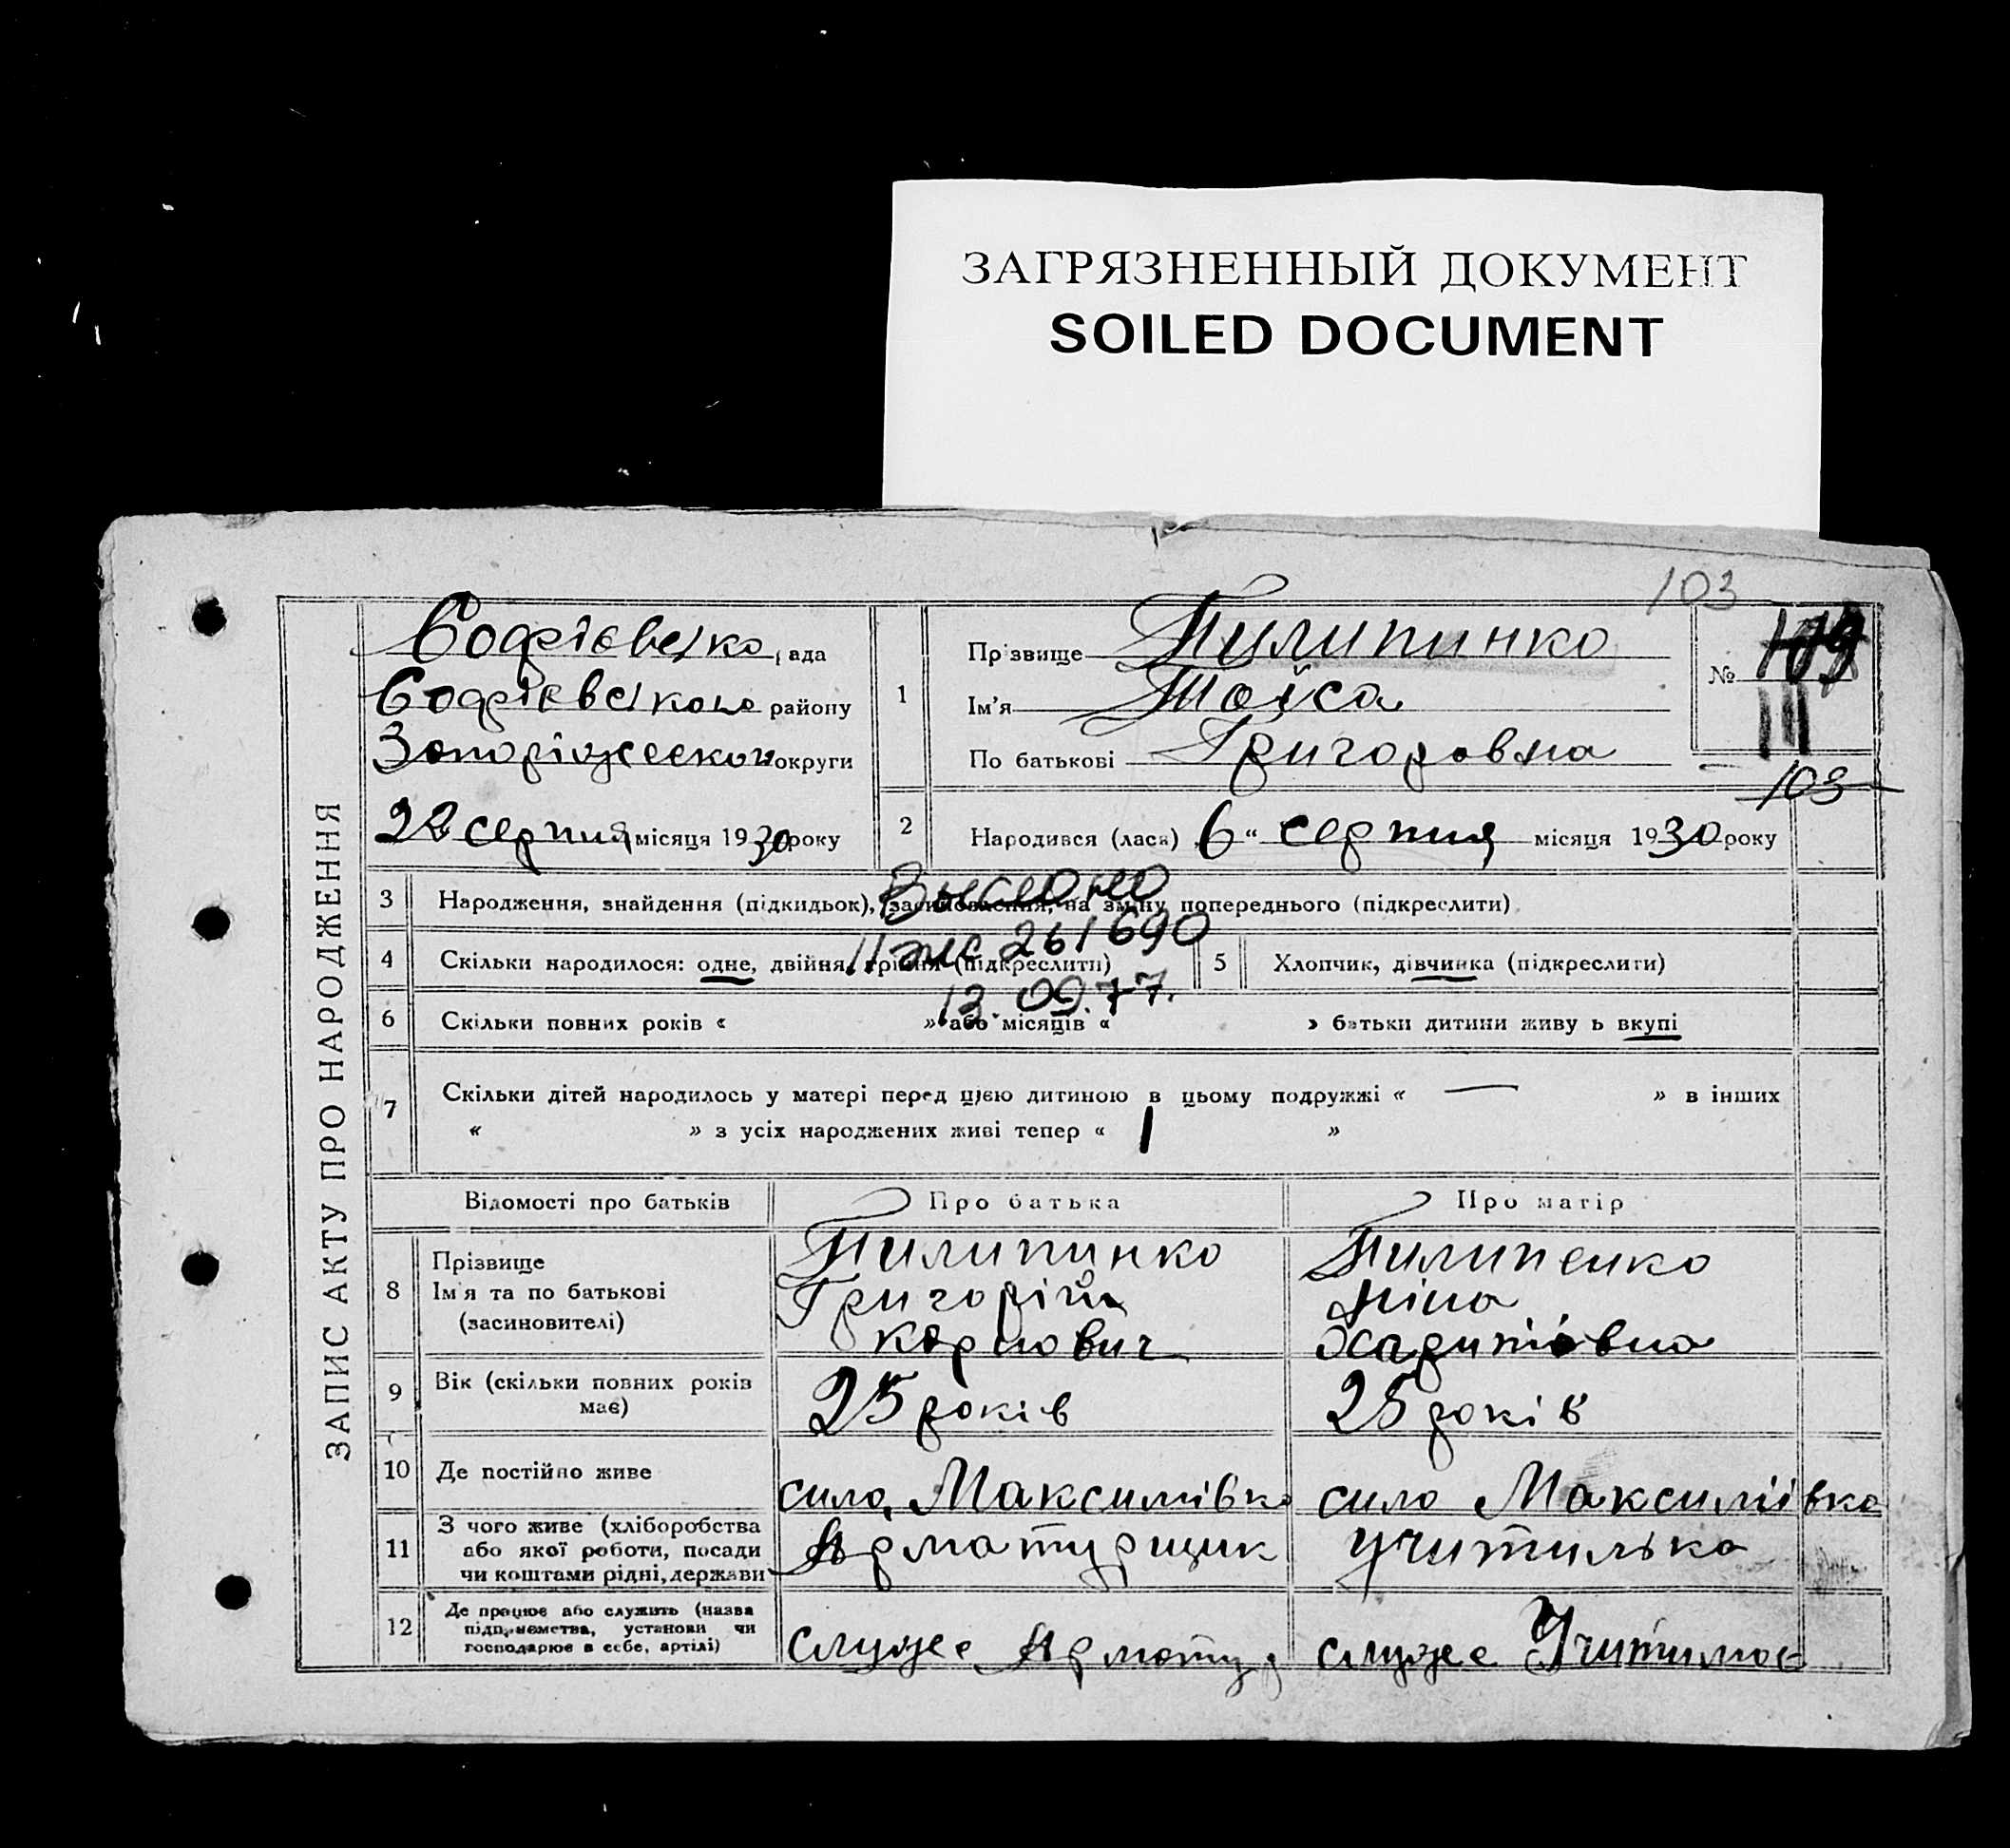 ЗАГРЯЗНЕННЫЙ ДОКУМЕНТ
SOILED DOCUMENT
103
ЗАПИС АКТУ ПРО НАРОДЖЕННЯ
Софієвська рада
Софієвського району
Запоріжської округи
22 серпня місяця 1930 року
1
Прізвище Пилипинко
Ім'я Таїса
По батькові Григоровна
№ 109
111
103
2
Народився (лася) „6“ серпня місяця 1930 року
3 Народження, знайдення (підкидьок), засиновлення, на зміну попереднього (підкреслити)
Выслано
4 Скільки народилося: одне, двійня, трійня (підкреслити)
5 Хлопчик, дівчинка (підкреслити)
261690
13.09.77.
6 Скільки повних років « » або місяців « » батьки дитини живуть вкупі
7 Скільки дітей народилось у матері перед цією дитиною в цьому подружжі « — » в інших
« » з усіх народжених живі тепер « 1 »
Відомості про батьків Про батька Про матір
8 Прізвище Пилипинко Пилипенко
Ім'я та по батькові Григорій Ніна
(засиновителі) Карпович Харитовна
9 Вік (скільки повних років має) 25 років 25 років
10 Де постійно живе село Максимівка село Максимівка
11 З чого живе (хліборобства
або якої роботи, посади
чи коштами рідні, держави Арматурщик учитилька
12 Де працює або служить (назва
підприємства, установи чи
господарює в себе, артілі) служе Армату служе